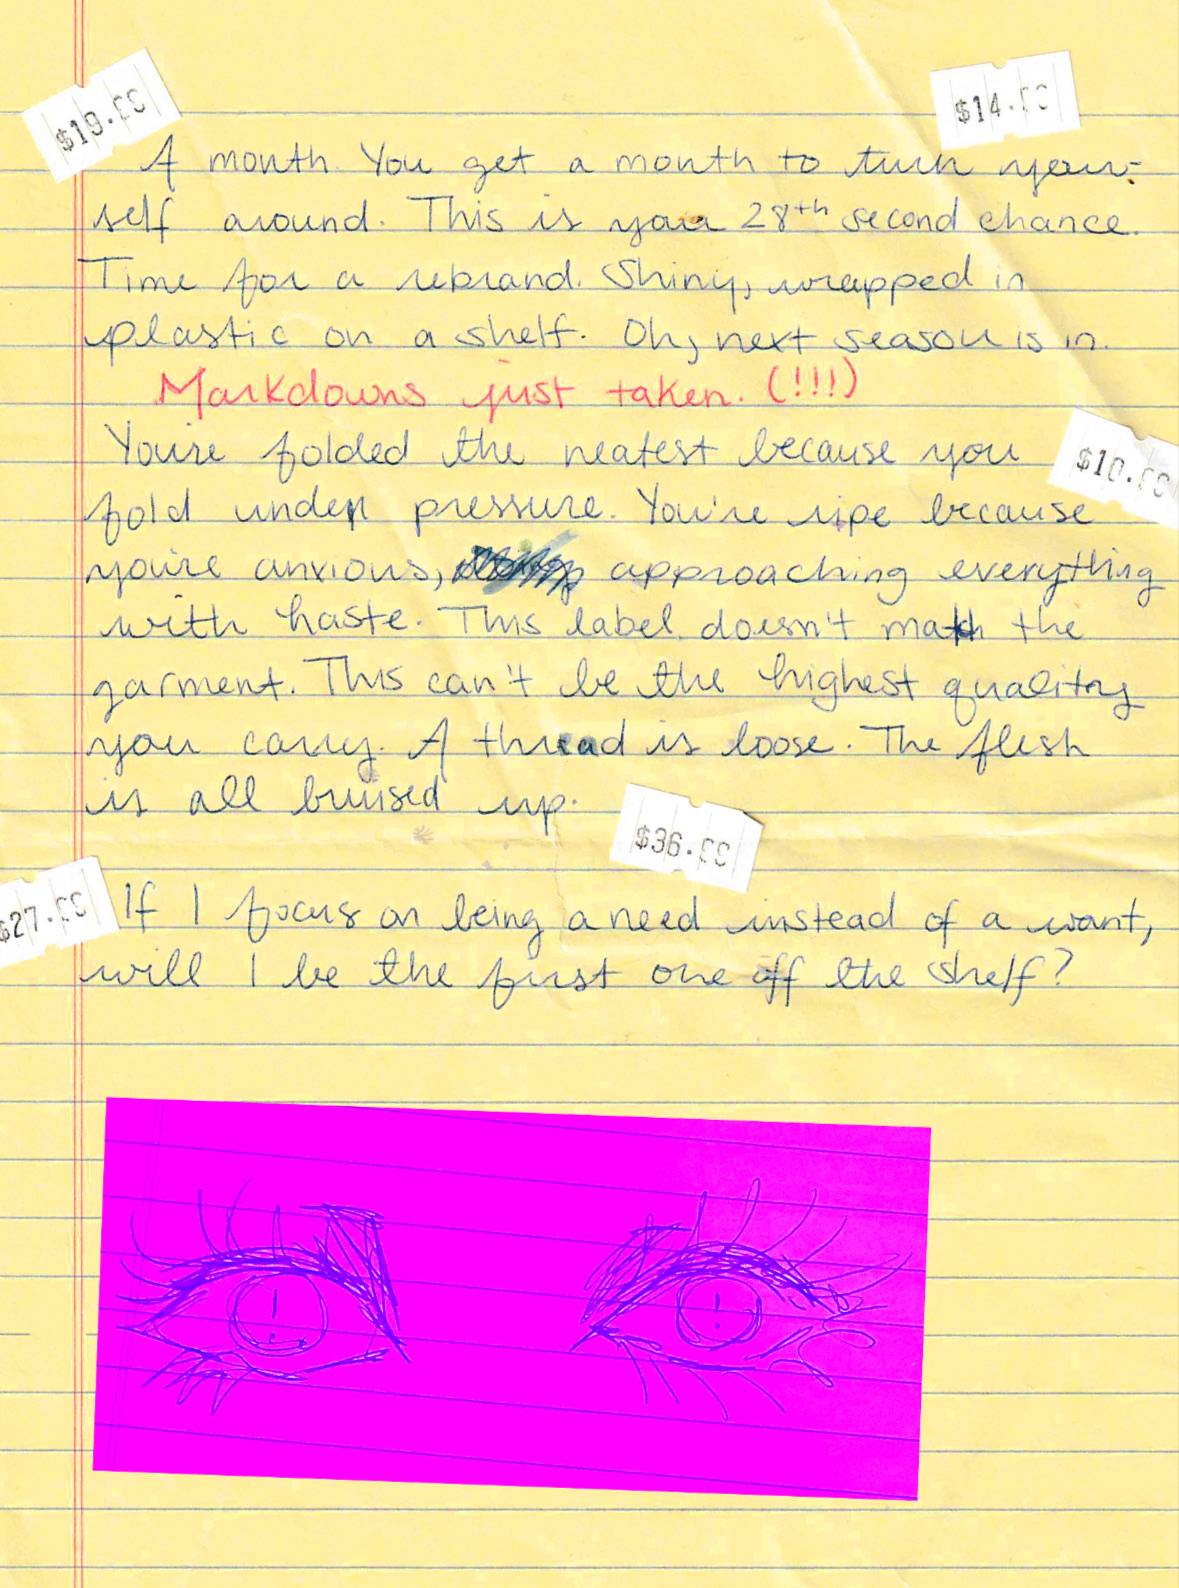 $19.00
$14.00
A month. You get a month to turn your-
self around. This is your 28th second chance.
Time for a rebrand. Shiny, wrapped in
plastic on a shelf. Oh, next season is in.
Markdowns just taken. (!!!)
You're folded the neatest because you
$10.00
fold under pressure. You're ripe because
you're anxious, approaching everything
with haste. This label doesn't match the
garment. This can't be the highest quality
you carry. A thread is loose. The flesh
is all bruised up.
$36.00
$27.00
If I focus on being a need instead of a want,
will I be the first one off the shelf?
! !